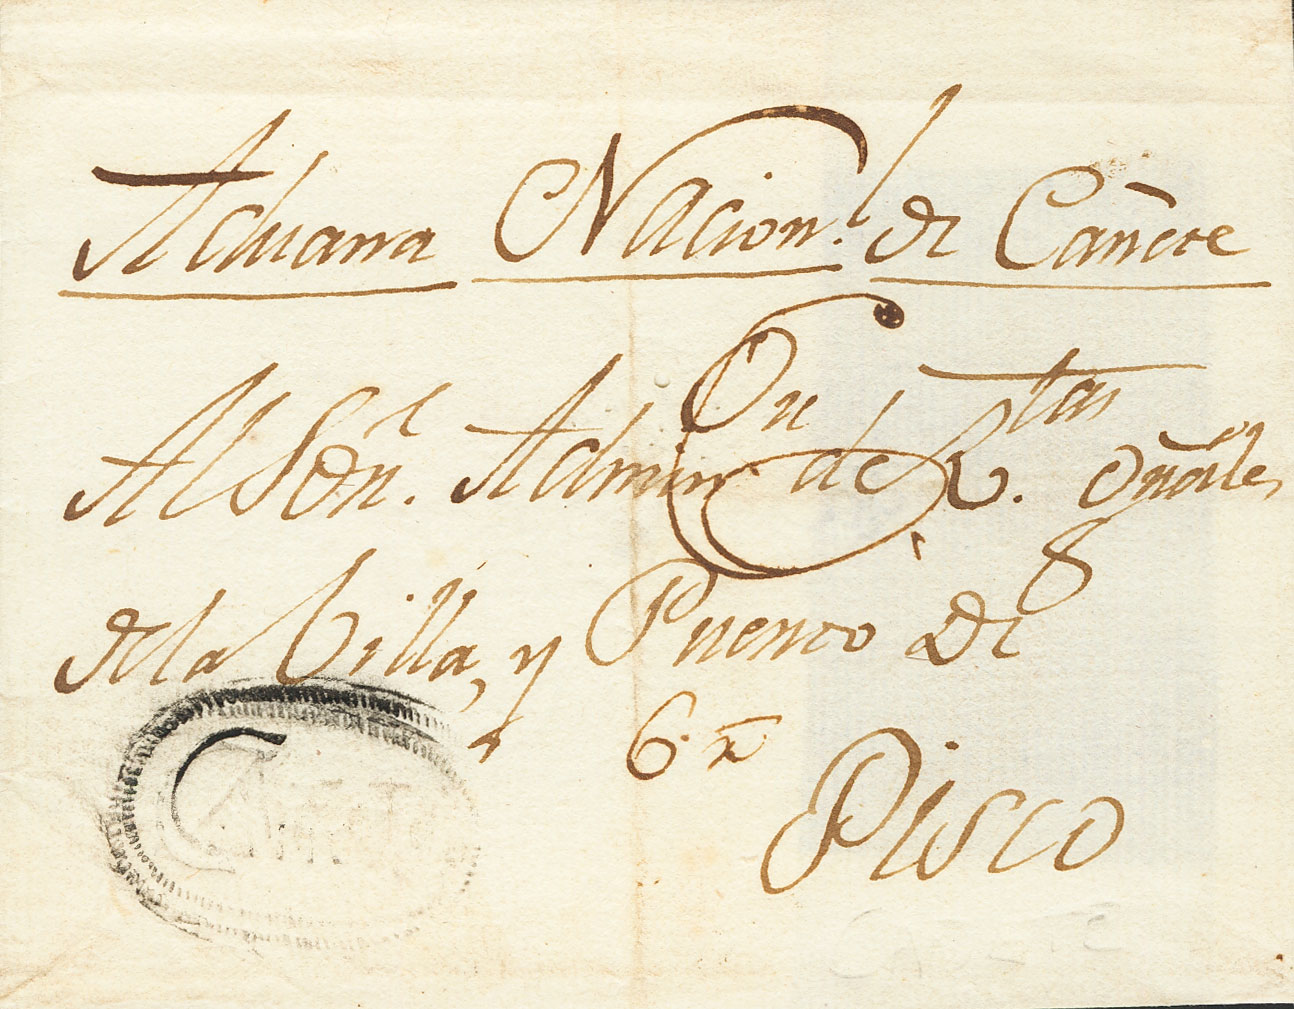 Aduana Nacion.l de Cañete
Al Sōr. Admin.or de R.tas
de la Villa, y Puerto de
6 r̄
Pisco
Cañete